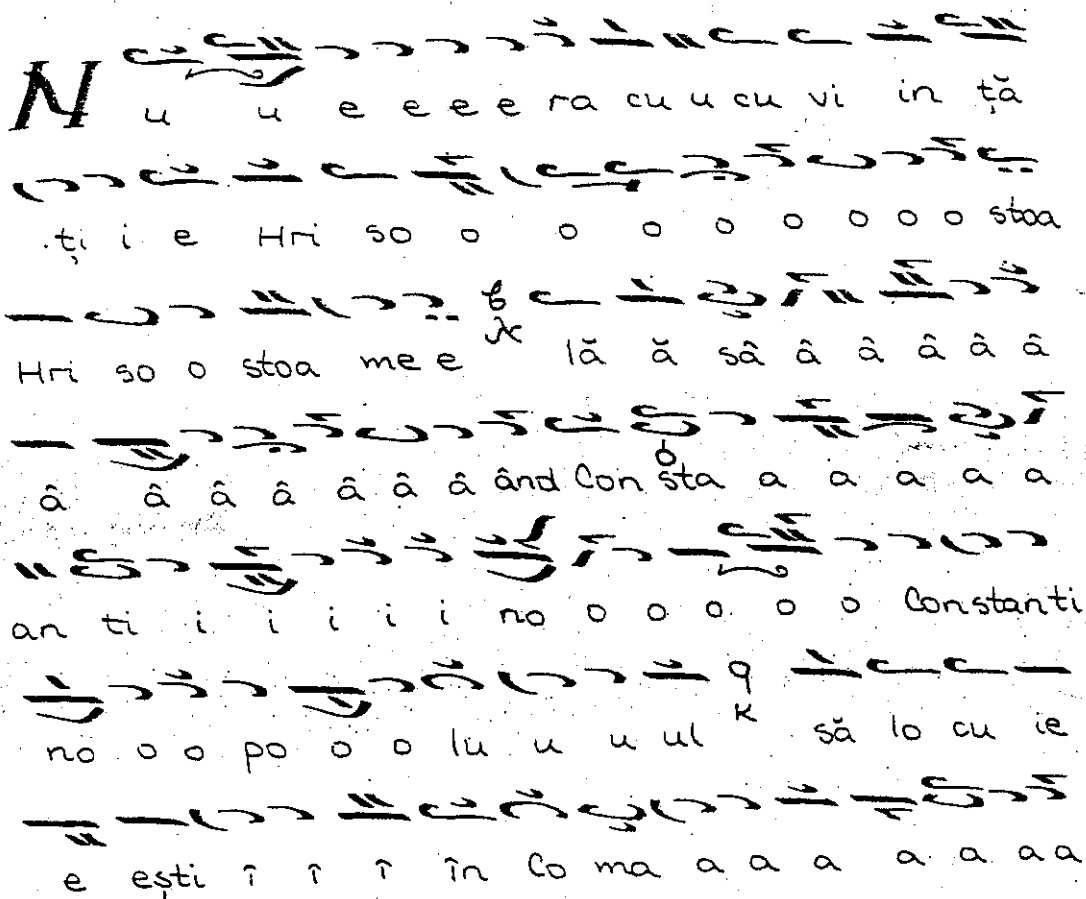 N u u e e e e ra cu u cu vi in ță
ți i e Hri so o o o o o o o o stoa
Hri so o stoa me e lă ă sâ â â â â â
â â â â â â â ând Con sta a a a a a
an ti i i i i i no o o o o o Constanti
no o o po o o lu u u ul să lo cu ie
e ești î î î în Co ma a a a a a a a